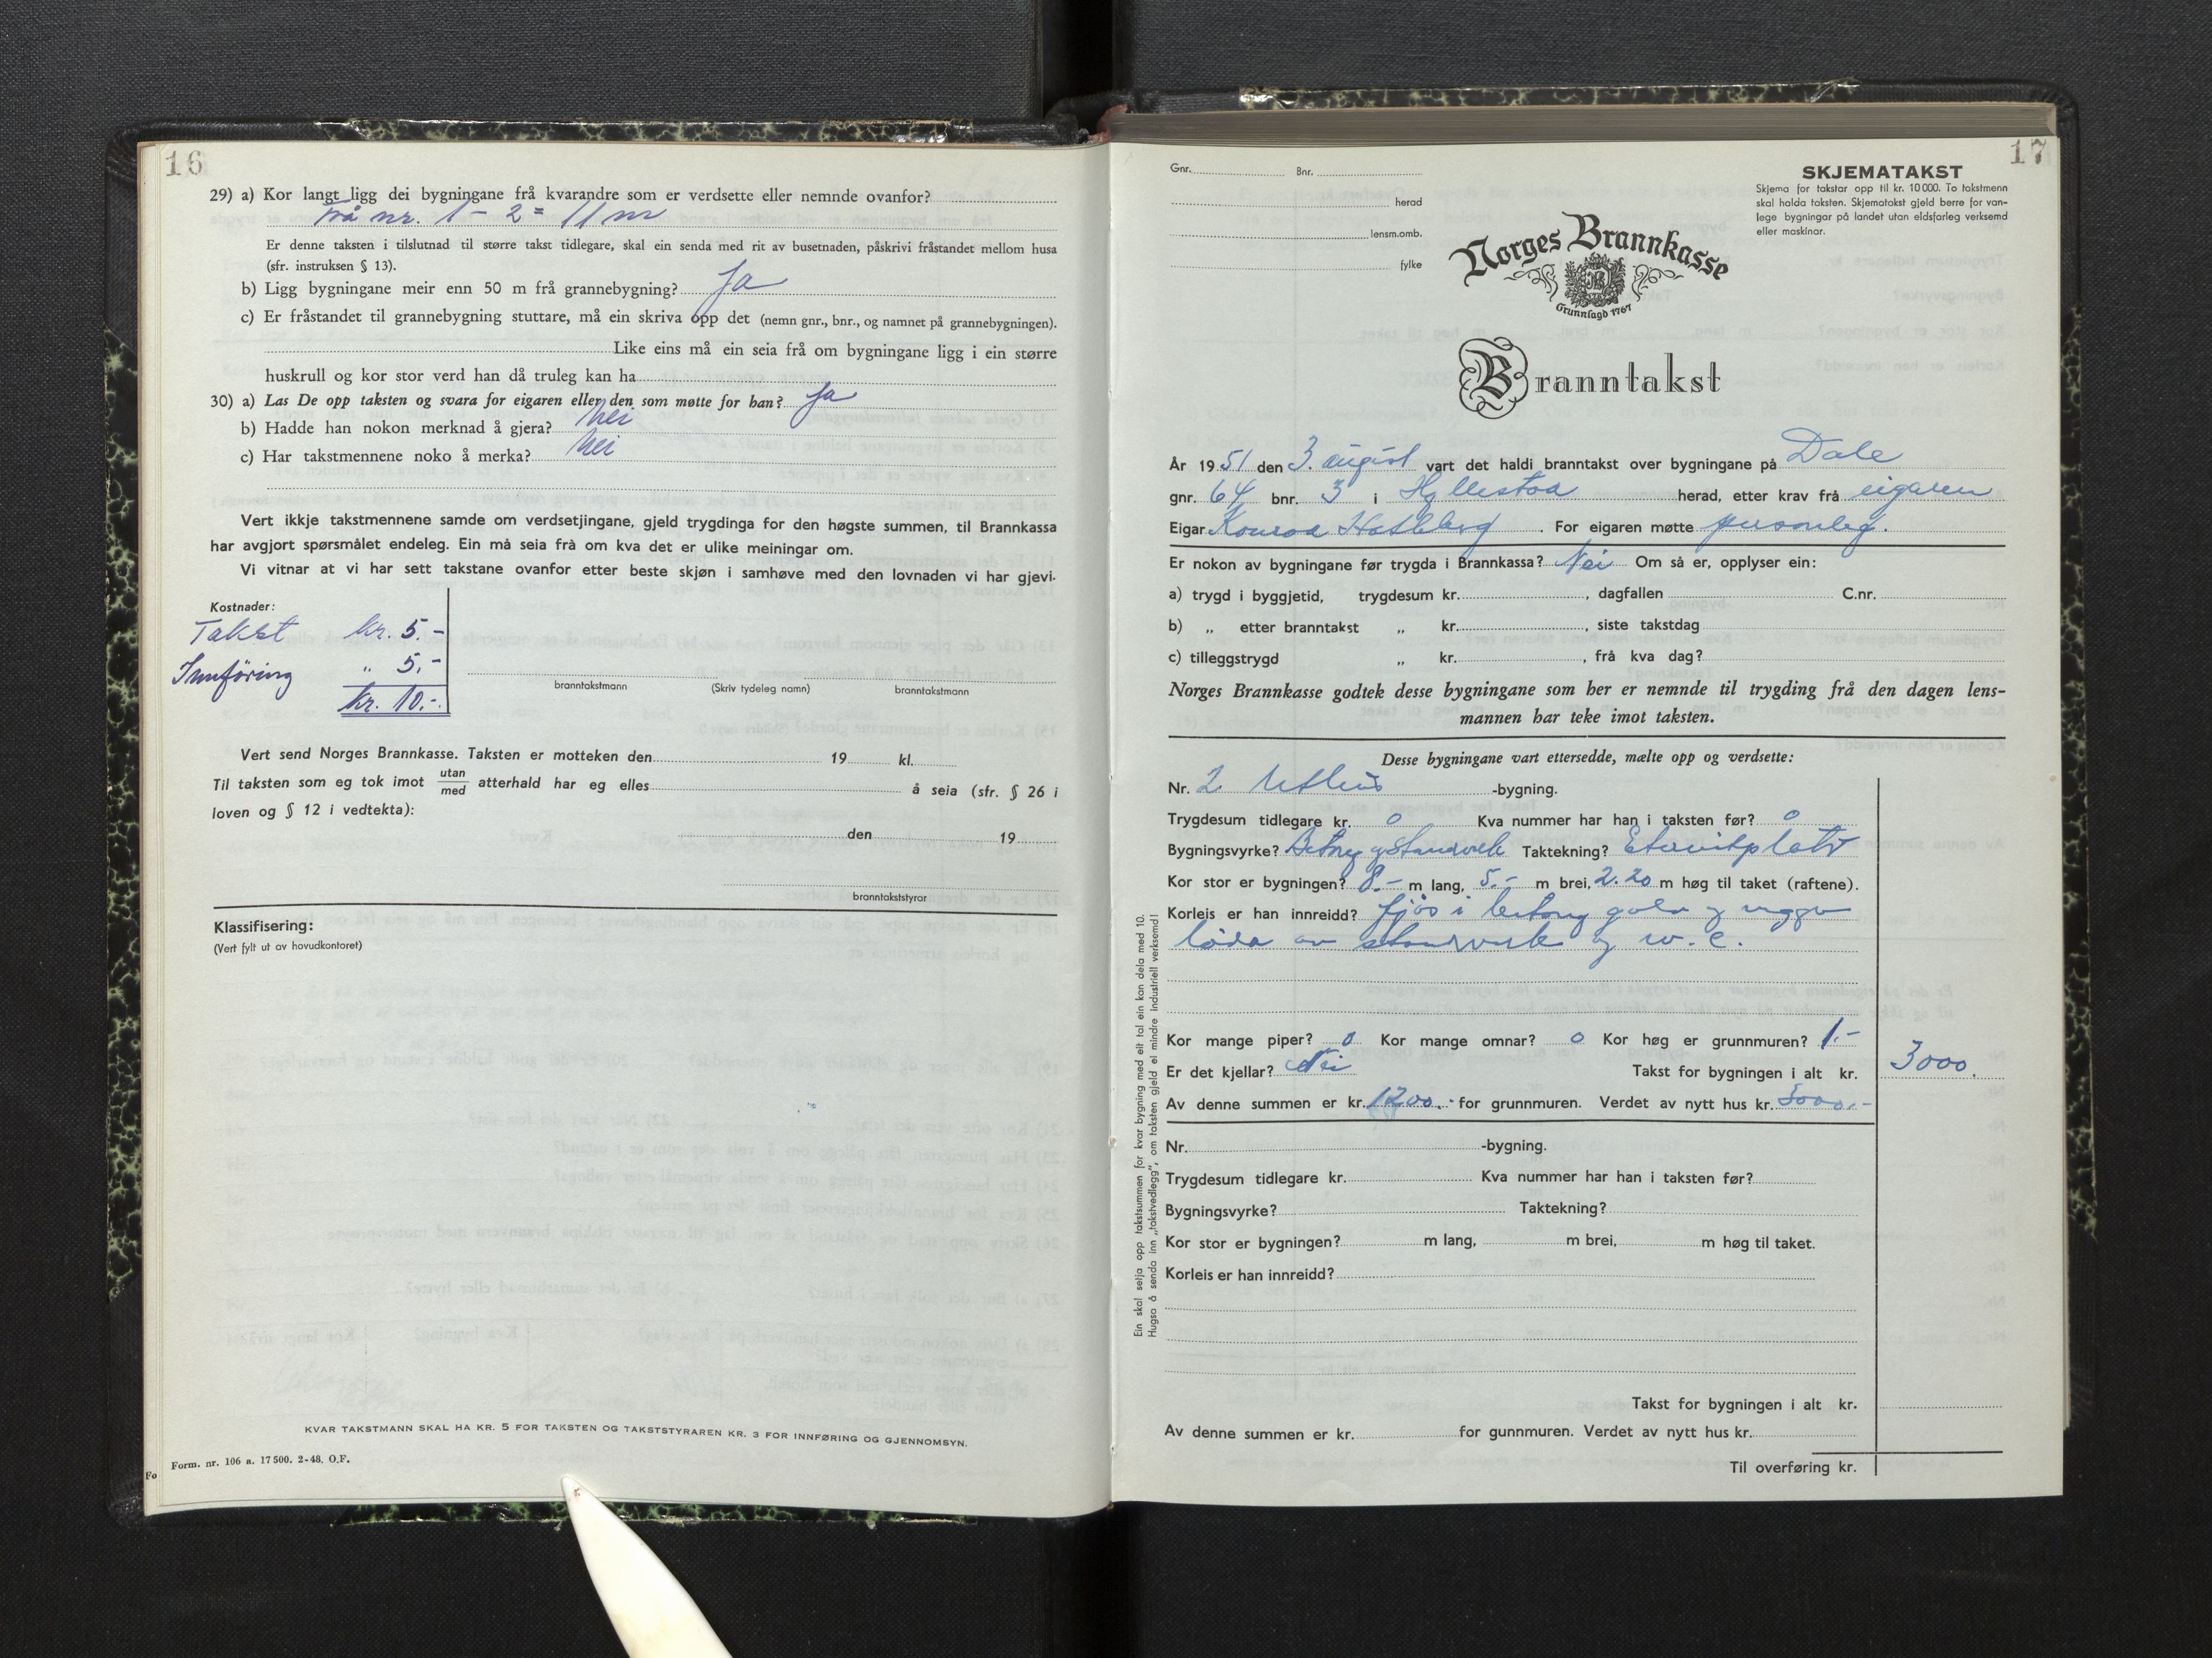 16
29) a) Kor langt ligg dei bygningane frå kvarandre som er verdsette eller nemnde ovanfor?
frå nr. 1 - 2 = 11 m
Er denne taksten i tilslutnad til større takst tidlegare, skal ein senda med rit av busetnaden, påskrivi fråstandet mellom husa
(sfr. instruksen § 13).
b) Ligg bygningane meir enn 50 m frå grannebygning? Ja
c) Er fråstandet til grannebygning stuttare, må ein skriva opp det (nemn gnr., bnr., og namnet på grannebygningen).
Like eins må ein seia frå om bygningane ligg i ein større
huskrull og kor stor verd han då truleg kan ha
30) a) Las De opp taksten og svara for eigaren eller den som møtte for han? Ja
b) Hadde han nokon merknad å gjera? Nei
c) Har takstmennene noko å merka? Nei
Vert ikkje takstmennene samde om verdsetjingane, gjeld trygdinga for den høgste summen, til Brannkassa
har avgjort spørsmålet endeleg. Ein må seia frå om kva det er ulike meiningar om.
Vi vitnar at vi har sett takstane ovanfor etter beste skjøn i samhøve med den lovnaden vi har gjevi.
Kostnader:
Takst kr. 5.-
Innföring " 5.-
kr. 10.-
branntakstmann (Skriv tydeleg namn) branntakstmann
Vert send Norges Brannkasse. Taksten er motteken den 19 kl.
Til taksten som eg tok imot utan/med atterhald har eg elles å seia (sfr. § 26 i
loven og § 12 i vedtekta):
den 19
branntakststyrar
Klassifisering:
(Vert fylt ut av hovudkontoret)
KVAR TAKSTMANN SKAL HA KR. 5 FOR TAKSTEN OG TAKSTSTYRAREN KR. 3 FOR INNFØRING OG GJENNOMSYN.
Fo
Form. nr. 106 a. 17 500. 2-48. O.F.
17
Gnr. Bnr.
herad
lensm.omb.
fylke
SKJEMATAKST
Skjema for takstar opp til kr. 10 000. To takstmenn
skal halda taksten. Skjematakst gjeld berre for van-
lege bygningar på landet utan eldsfarleg verksemd
eller maskinar.
Norges Brannkasse
Grunnlagd 1767
Branntakst
År 1951 den 3. august vart det haldi branntakst over bygningane på Dale
gnr. 64 bnr. 3 i Hyllestad herad, etter krav frå eigaren
Eigar Konrad Hatleberg. For eigaren møtte personleg.
Er nokon av bygningane før trygda i Brannkassa? Nei Om så er, opplyser ein:
a) trygd i byggjetid, trygdesum kr. , dagfallen C.nr.
b) „ etter branntakst „ kr. , siste takstdag
c) tilleggstrygd „ kr. , frå kva dag?
Norges Brannkasse godtek desse bygningane som her er nemnde til trygding frå den dagen lens-
mannen har teke imot taksten.
Desse bygningane vart ettersedde, mælte opp og verdsette:
Nr. 2 Uthus -bygning.
Trygdesum tidlegare kr. 0 Kva nummer har han i taksten før? 0
Bygningsvyrke? Betong og standverk Taktekning? Eternitplatr
Kor stor er bygningen? 8.- m lang, 5.- m brei, 2.20 m høg til taket (raftene).
Korleis er han innreidd? fjös i betong golv og vegger
löda av standverk og w. c.
Kor mange piper? 0 Kor mange omnar? 0 Kor høg er grunnmuren? 1.-
Er det kjellar? Nei Takst for bygningen i alt kr. 3000.
Av denne summen er kr. 1200.- for grunnmuren. Verdet av nytt hus kr. 3000.-
Nr. -bygning.
Trygdesum tidlegare kr. Kva nummer har han i taksten før?
Bygningsvyrke? Taktekning?
Kor stor er bygningen? m lang, m brei, m høg til taket.
Korleis er han innreidd?
Takst for bygningen i alt kr.
Av denne summen er kr. for gunnmuren. Verdet av nytt hus kr.
Til overføring kr.
Ein skal setja opp takstsummen for kvar bygning med eit tal ein kan dela med 10.
Hugsa å senda inn „takstvedlegg", om taksten gjeld ei mindre industriell verksemd!